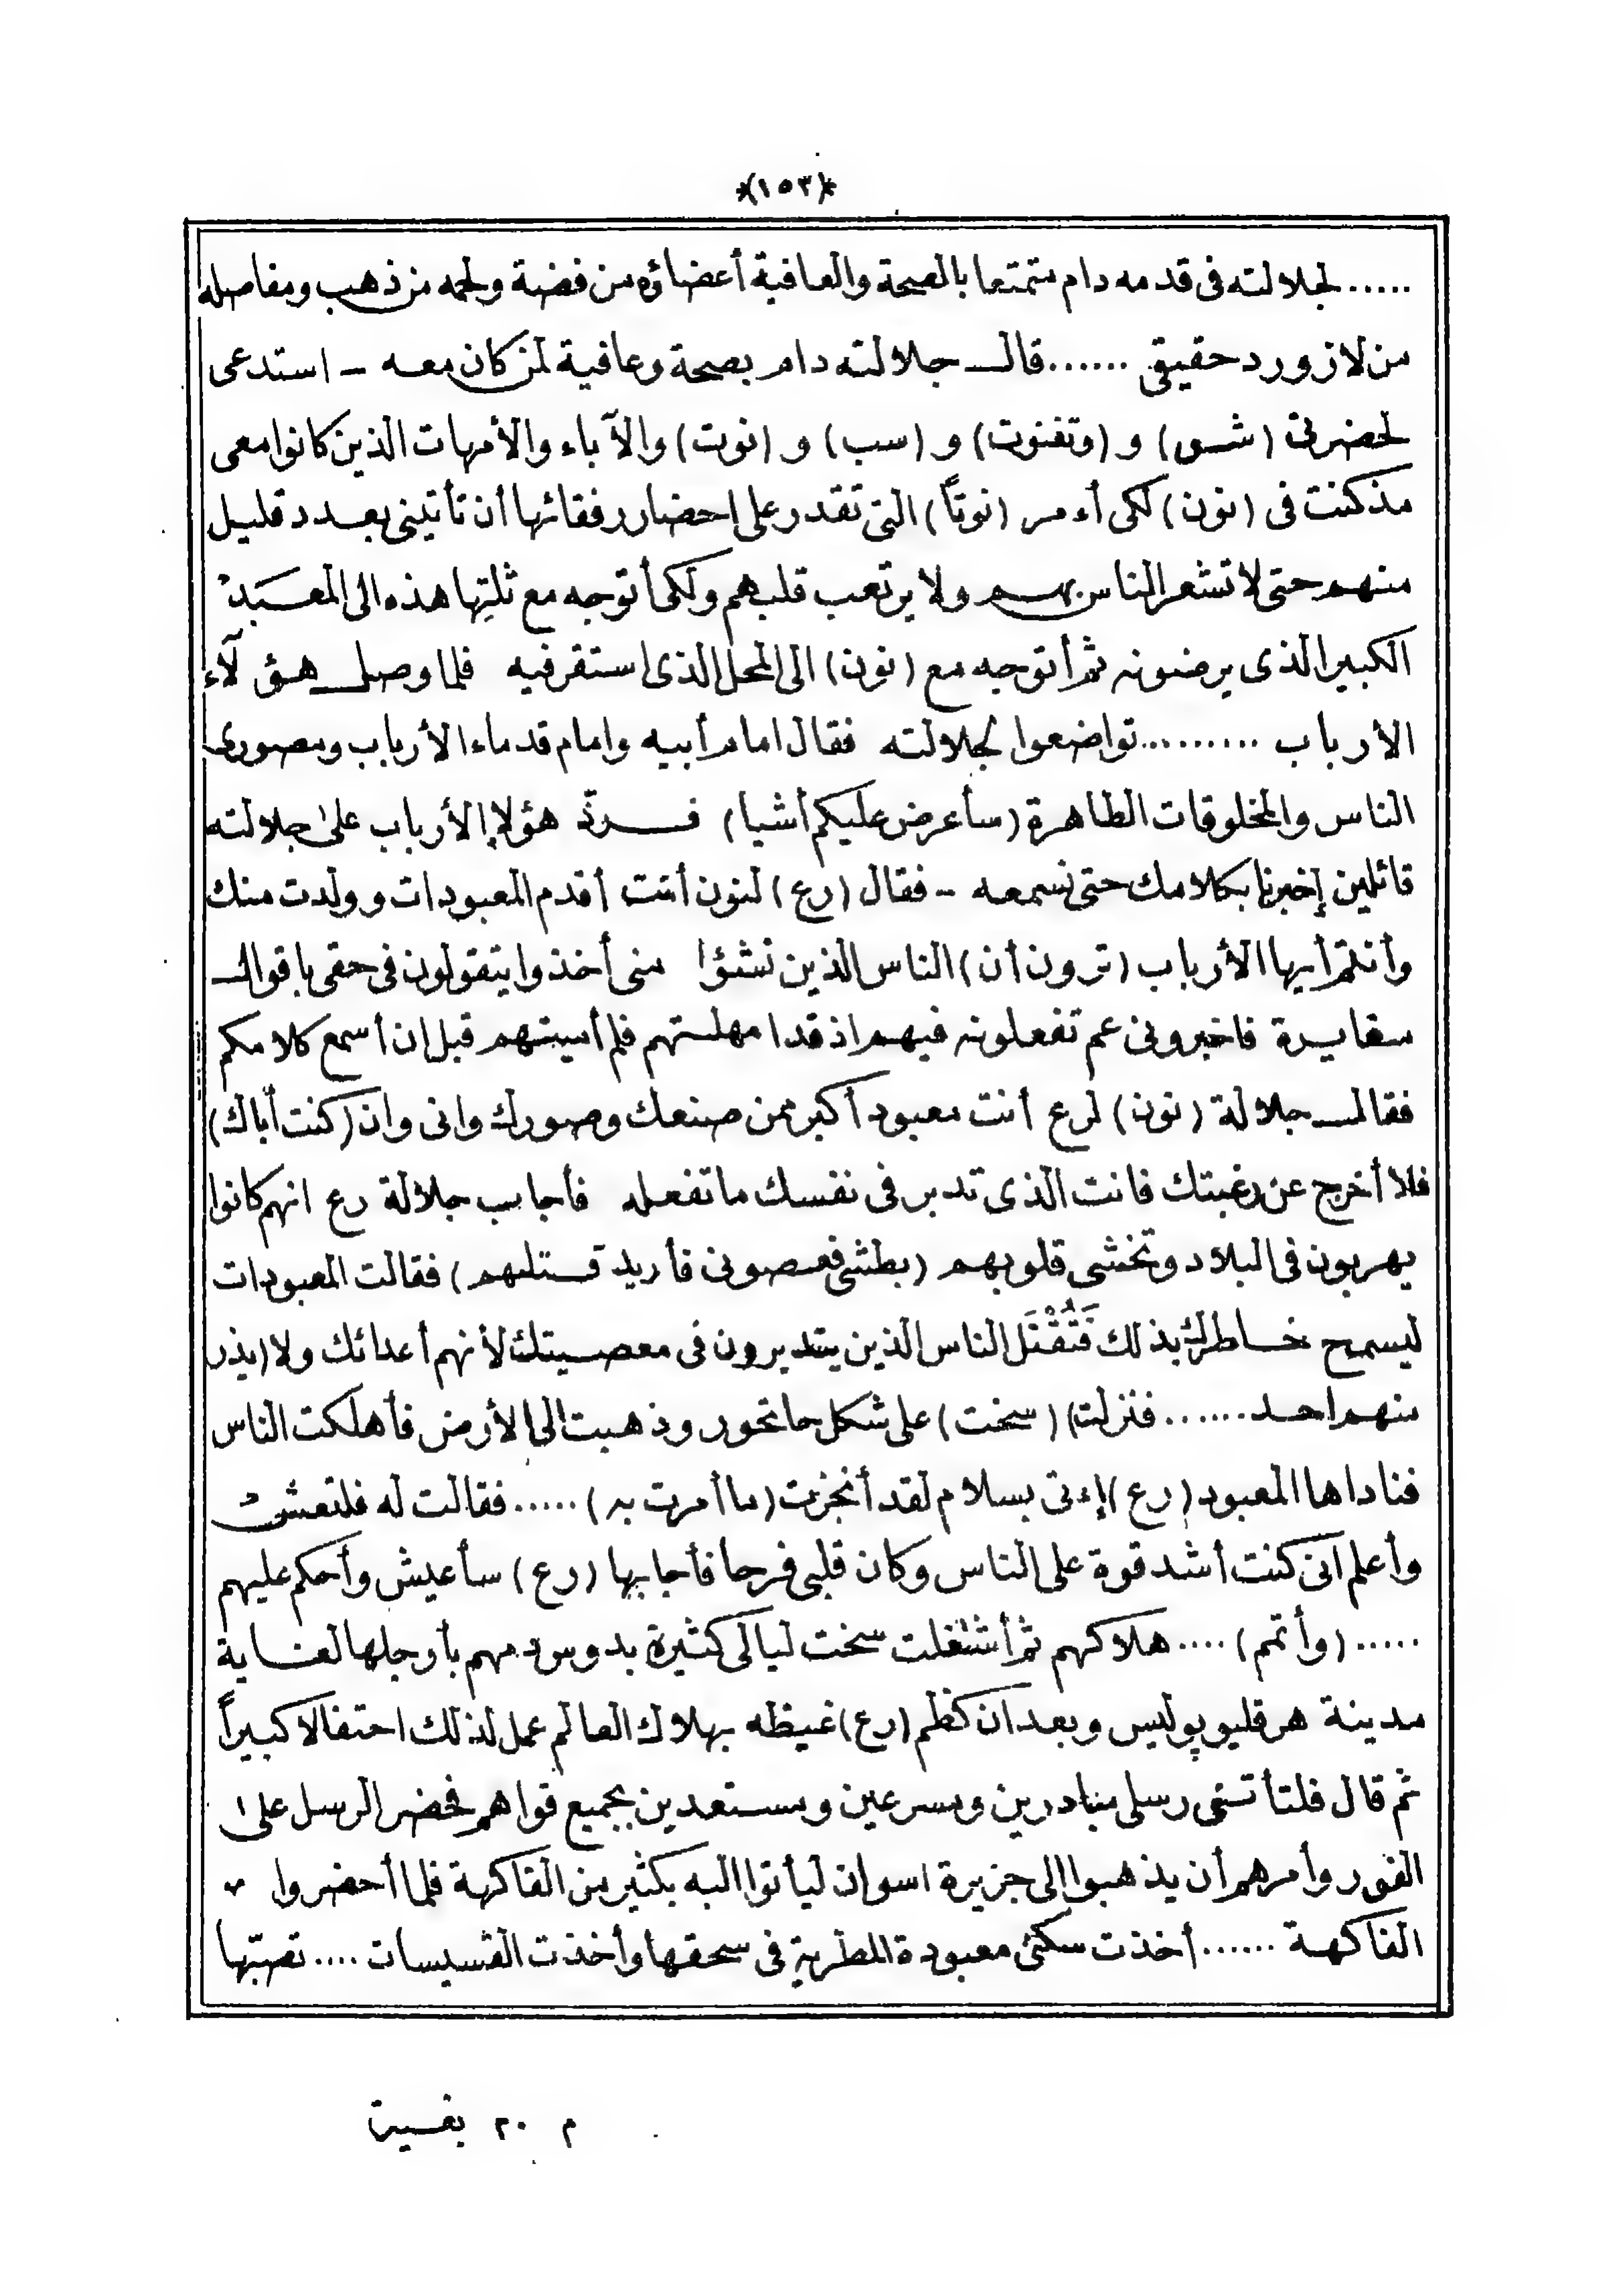 *(١٥٣)*
..... لجلالته فى قدمه دام متمتعا بالصحة والعافية أعضاؤه من فضة ولحمه من ذهب ومفاصله
من لازورد حقيقى ...... قال جلالته دام بصحة وعافية لمن كان معه – استدعى
لحضرتى (شو) و (وتفنوت) و (سب) و (نوت) والآباء والأمهات الذين كانوا معى
مذ كنت فى (نون) لكى أءمر (نوتاً) التى تقدر على إحضار رفقائها أن تأتينى بعدد قليل
منهم حتى لا تشعر الناس بهم ولا يرتعب قلبهم ولكى أتوجه مع ثلتها هذه الى المعبد
الكبير الذى يرضونه ثم أتوجه مع (نون) الى المحل الذى استقر فيه فلما وصل هؤلآء
الأرباب ......... تواضعوا لجلالته فقال امام أبيه وامام قدماء الأرباب ومصورى
الناس والمخلوقات الطاهرة (سأعرض عليكم أشيا) فردّ هؤلاء الأرباب على جلالته
قائلين إخبرنا بكلامك حتى نسمعه – فقال (رع) لنون أنت أقدم المعبودات وولدت منك
وأنتم أيها الأرباب (ترون أن) الناس الذين نشؤا منى أخذوا يتقولون فى حقى باقوال
مغايرة فاخبرونى عم تفعلونه فيهم اذ قد امهلتهم فلم أميتهم قبل ان أسمع كلامكم
فقال جلالة (نون) لرع أنت معبود أكبر ممن صنعك وصورك وانى وان (كنت أباك)
فلا أخرج عن رغبتك فانت الذى تدبر فى نفسك ما تفعله فأجاب جلالة رع انهم كانوا
يهربون فى البلاد وتخشى قلوبهم (بطشى فعصونى فأريد قتلهم) فقالت المعبودات
ليسمح خاطرك بذلك فَتُقْتَل الناس الذين يتدبرون فى معصيتك لأنهم أعدائك ولا (يذر
منهم احد ...... فنزلت) (سخت) على شكل حاتحور وذهبت الى الأرض فأهلكت الناس
فناداها المعبود (رع) إءتى بسلام لقد أنجزت (ما أمرت به) ..... فقالت له فلتعش
وأعلم انى كنت أشد قوة على الناس وكان قلبى فرحا فأجابها (رع) سأعيش وأحكم عليهم
..... (وأتمم) .... هلاكهم ثم أشتغلت سخت ليالى كثيرة بدوس دمهم بأرجلها لغاية
مدينة هرقليوپوليس وبعد ان كظم (رع) غيظه بهلاك العالم عمل لذلك احتفالا كبيراً
ثم قال فلتأتنى رسلى مبادرين ومسرعين ومستعدين بجميع قواهم فحضر الرسل على
الفور وأمرهم أن يذهبوا الى جزيرة اسوان ليأتوا اليه بكثير من الفاكهة فلما أحضروا
الفاكهة ...... أخذت سكتى معبودة المطرية فى سحقها وأخذت القسيسات .... تصبّها
م ٢٠